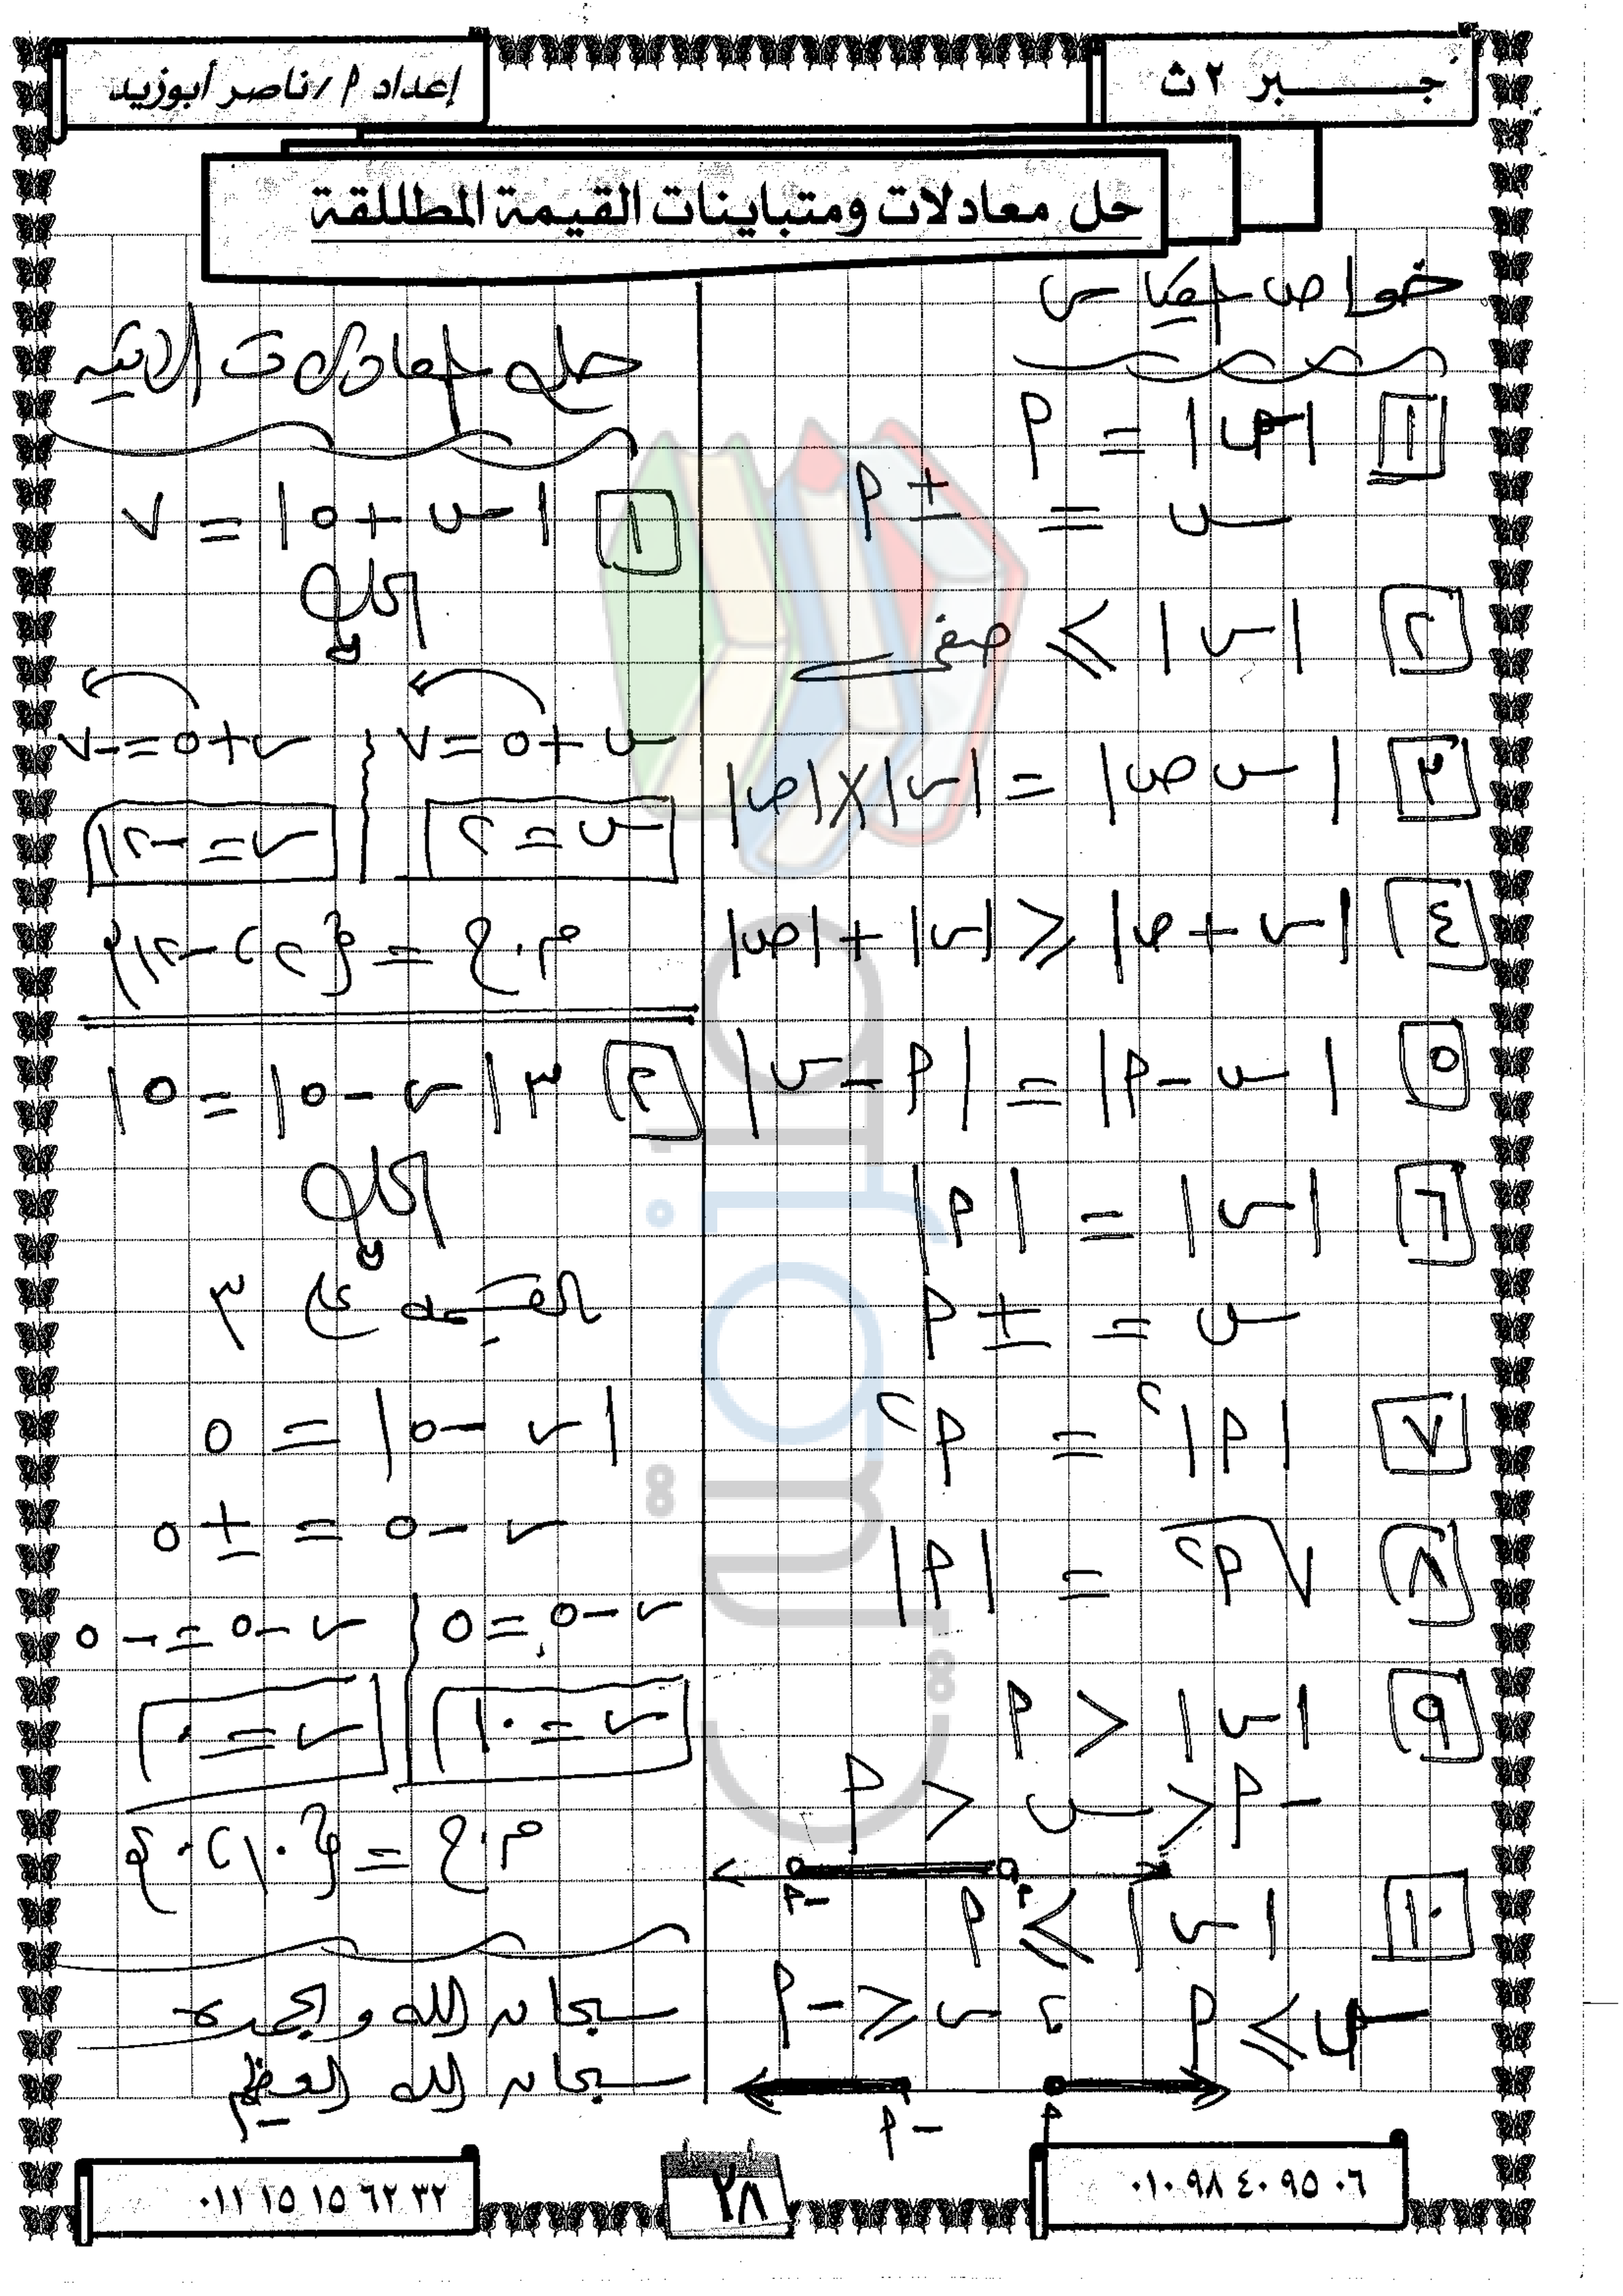 جبر ٢ ث
إعداد م/ ناصر أبوزيد
حل معادلات ومتباينات القيمة المطللقة
خواص المقياس
[١] |س| = م
س = ± م
[٢] |س| ≥ صفر
[٣] |س ص| = |س| × |ص|
[٤] |س + ص| ≤ |س| + |ص|
[٥] |س - م| = |م - س|
[٦] |س| = |م|
س = ± م
[٧] |م|² = م²
[٨] √م² = |م|
[٩] |س| < م
-م < س < م
-م م
[١٠] |س| ≥ م
س ≥ م ، س ≤ -م
-م م
حل المعادلات الاتيه
[١] |س + ٥| = ٧
الحل
س + ٥ = ٧ س + ٥ = -٧
س = ٢ س = -١٢
م.ح = {٢، -١٢}
[٢] ٣ |س - ٥| = ١٥
الحل
بالقسمه على ٣
|س - ٥| = ٥
س - ٥ = ± ٥
س - ٥ = ٥ س - ٥ = -٥
س = ١٠ س = ٠
م.ح = {١٠، ٠}
سبحان الله وبحمده
سبحان الله العظيم
٠١٠ ٩٨ ٤٠ ٩٥ ٠٦
٢٨
٠١١ ١٥ ١٥ ٦٢ ٣٢